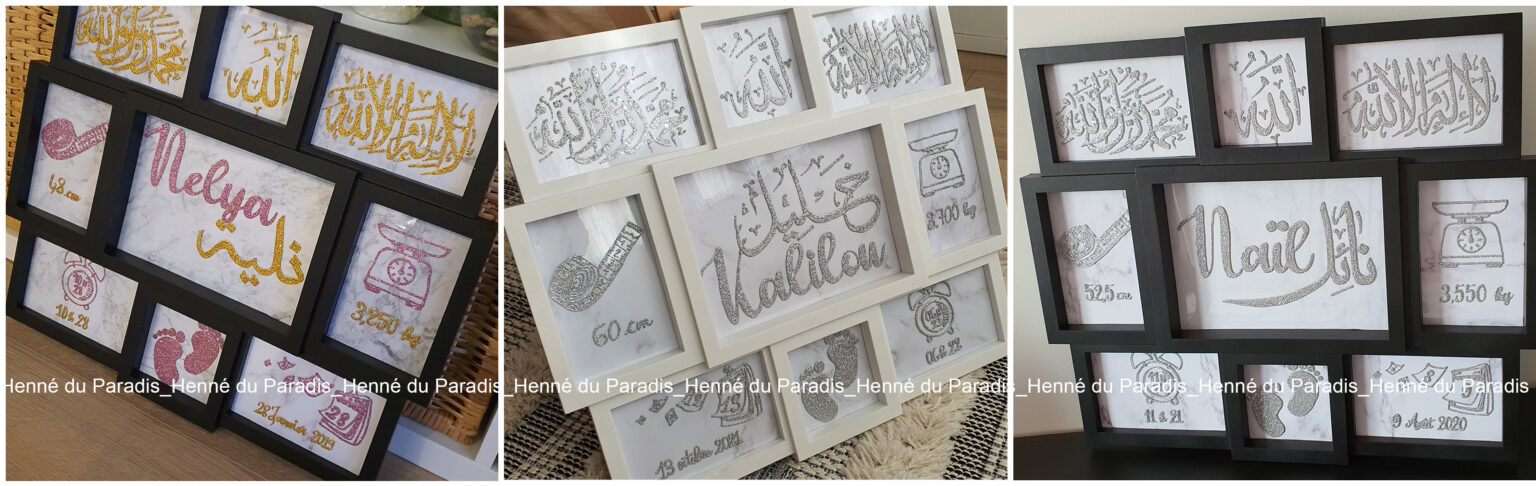 محمد رسول الله
الله
لا إله إلا الله
48 cm
Nelya
نلية
3,250 kg
10h28
28 Janvier 2019
28
محمد رسول الله
الله
لا إله إلا الله
60 cm
خليل
Kalilou
3,700 kg
06h23
13 octobre 2021
محمد رسول الله
الله
لا إله إلا الله
52,5 cm
Naïl
نائل
3,550 kg
11h21
9 Août 2020
Henné du Paradis_Henné du Paradis_Henné du Paradis_Henné du Paradis_Henné du Paradis_Henné du Paradis_Henné du Paradis_Henné du Paradis_Henné du Paradis